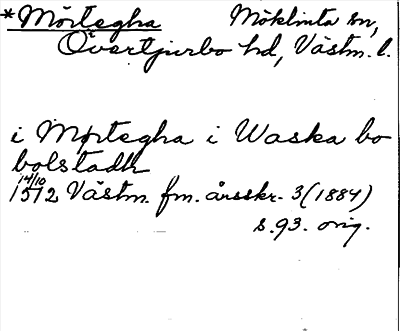 *Mörtegha Möklinta sn,
Övertjurbo hd, Västm. l.
i Mörtegha i Waska bo
bolstadh
14/10
1512 Västm. fm. årsskr. 3 (1884)
s. 93. orig.